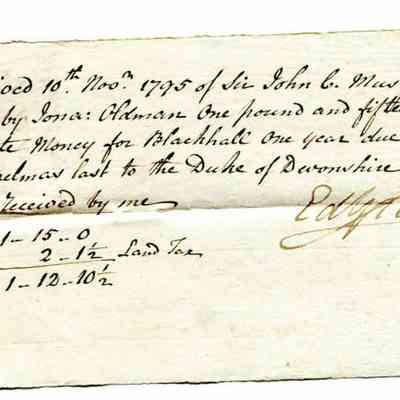 ioed 10th. Novr. 1795 of Sir John C. Mus
by Jona: Oldman One pound and fifte
te Money for Blackhall One year due
elmas last to the Duke of Devonshire
Received by me
1 - 15 - 0
2 - 1½ Land Tax
1 - 12 - 10½